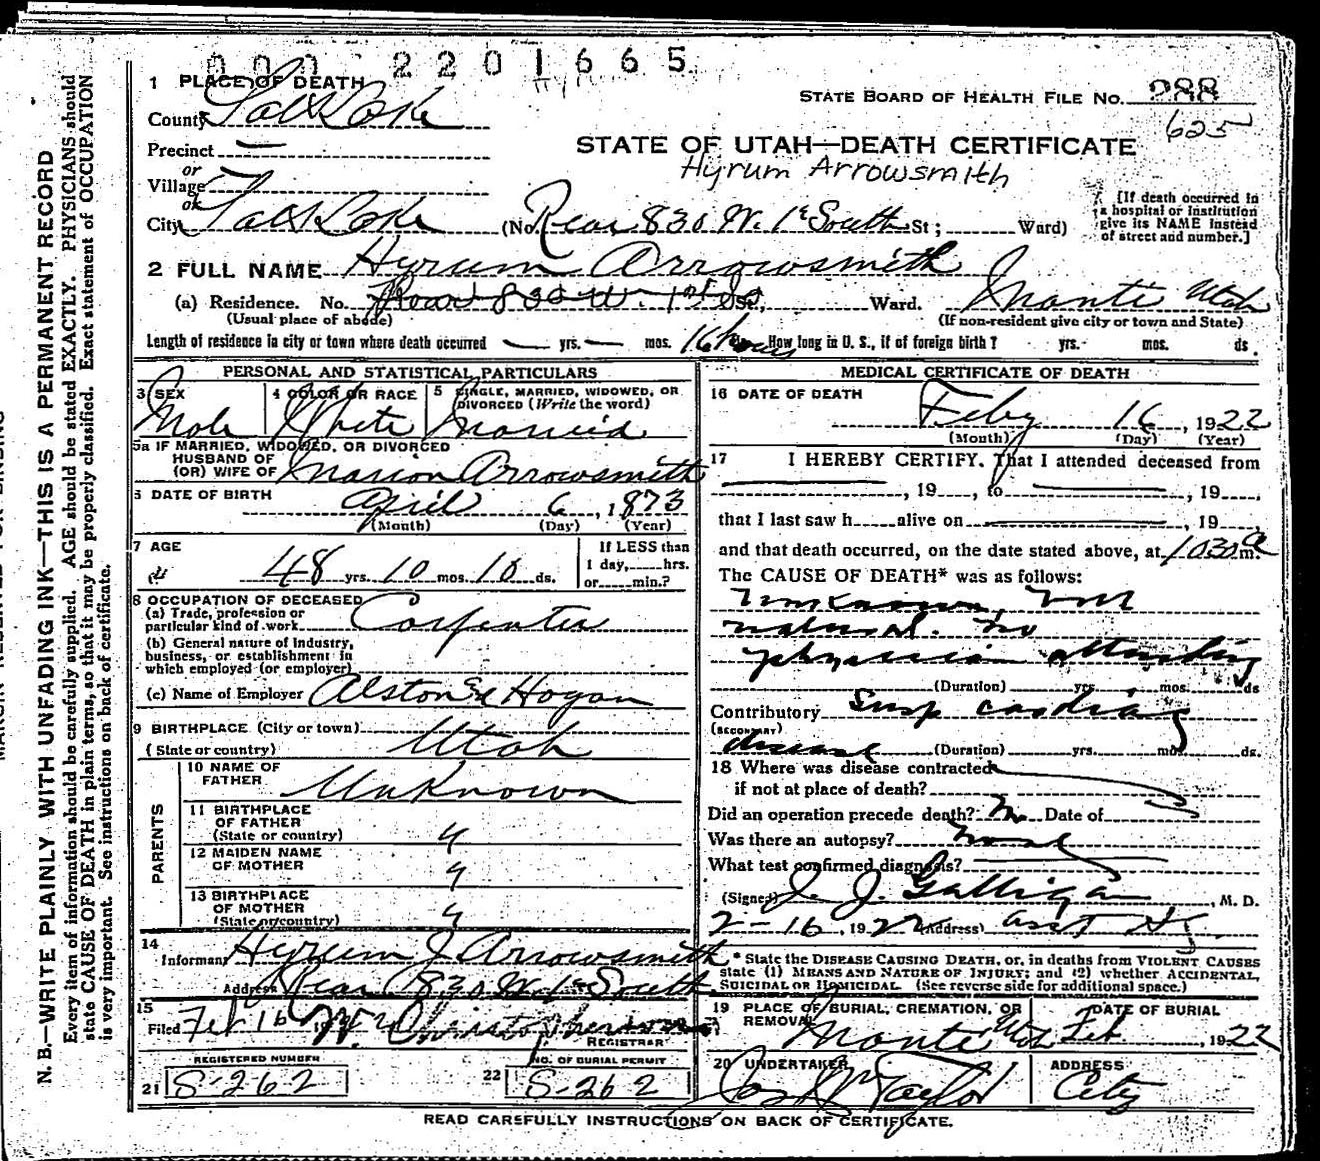 000 2201665
1 PLACE OF DEATH
County Salt Lake
STATE BOARD OF HEALTH FILE NO. 288
625
STATE OF UTAH—DEATH CERTIFICATE
Hyrum Arrowsmith
Precinct —
or
Village —
or
City Salt Lake (No. Rear 830 W. 1st South St; Ward)
[If death occurred in
a hospital or institution
give its NAME instead
of street and number.]
2 FULL NAME Hyrum Arrowsmith
(a) Residence. No. Rear 830 W. 1st So St., Ward. Manti Utah
(Usual place of abode) (If non-resident give city or town and State)
Length of residence in city or town where death occurred — yrs. — mos. 16 hours How long in U. S., if of foreign birth? yrs. mos. ds.
PERSONAL AND STATISTICAL PARTICULARS
3 SEX 4 COLOR OR RACE 5 SINGLE, MARRIED, WIDOWED, OR
DIVORCED (Write the word)
Male White Married
5a IF MARRIED, WIDOWED, OR DIVORCED
HUSBAND OF
(OR) WIFE OF Marion Arrowsmith
6 DATE OF BIRTH April 6, 1873
(Month) (Day) (Year)
7 AGE 48 yrs. 10 mos. 10 ds.
If LESS than
1 day, hrs.
or min.?
8 OCCUPATION OF DECEASED
(a) Trade, profession or
particular kind of work Carpenter
(b) General nature of Industry,
business, or establishment in
which employed (or employer)
(c) Name of Employer Alston & Hogan
9 BIRTHPLACE (City or town)
(State or country) Utah
PARENTS
10 NAME OF
FATHER Unknown
11 BIRTHPLACE
OF FATHER
(State or country) "
12 MAIDEN NAME
OF MOTHER "
13 BIRTHPLACE
OF MOTHER
(State or country) "
14
Informant Hyrum J Arrowsmith
Address Rear 830 W. 1st South
15
Filed Feb 16 19 W. Christopherson
REGISTRAR
REGISTERED NUMBER NO. OF BURIAL PERMIT
21 S-262 22 S-262
MEDICAL CERTIFICATE OF DEATH
16 DATE OF DEATH
Feby 16, 1922
(Month) (Day) (Year)
17 I HEREBY CERTIFY, That I attended deceased from
, 19 , to , 19 ,
that I last saw h alive on , 19 ,
and that death occurred, on the date stated above, at 1030 a m.
The CAUSE OF DEATH* was as follows:
Unknown, but
natural. No
physician attending
(Duration) yrs. mos. ds
Contributory Susp cardiac
(SECONDARY)
disease (Duration) yrs. mos. ds.
18 Where was disease contracted
if not at place of death?
Did an operation precede death? No Date of
Was there an autopsy?
What test confirmed diagnosis?
(Signed) J. J. Galligan, M. D.
2-16, 1922 (Address)
* State the DISEASE CAUSING DEATH, or, in deaths from VIOLENT CAUSES
state (1) MEANS AND NATURE OF INJURY; and (2) whether ACCIDENTAL,
SUICIDAL OR HOMICIDAL. (See reverse side for additional space.)
19 PLACE OF BURIAL, CREMATION, OR
REMOVAL DATE OF BURIAL
Manti Utah Feb. , 1922
20 UNDERTAKER ADDRESS
Jos Wm Taylor City
READ CAREFULLY INSTRUCTIONS ON BACK OF CERTIFICATE.
N. B.—WRITE PLAINLY WITH UNFADING INK—THIS IS A PERMANENT RECORD
Every item of information should be carefully supplied. AGE should be stated EXACTLY. PHYSICIANS should
state CAUSE OF DEATH in plain terms, so that it may be properly classified. Exact statement of OCCUPATION
is very important. See instructions on back of certificate.
MARGIN RESERVED FOR BINDING